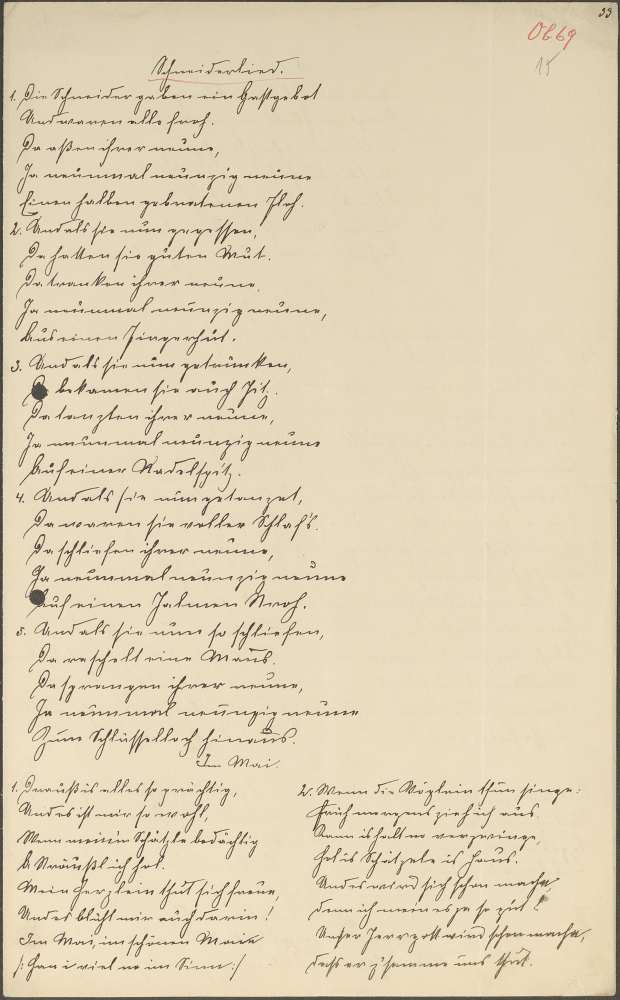 33
Ob 69
15
Schneiderlied.
1. Die Schneider gaben ein Gastgebot
Und waren alle froh.
Da aßen ihrer neune,
Ja neunmal neunzig neune
Einen halben gebratenen Floh.
2. Und als sie nun gegessen,
Da hatten sie guten Mut.
Da tranken ihrer neune,
Ja neunmal neunzig neune,
Aus einem Fingerhut.
3. Und als sie nun getrunken,
Da bekamen sie auch Hitz.
Da tanzten ihrer neune,
Ja neunmal neunzig neune
Auf einer Nadelspitz.
4. Und als sie nun getanzet,
Da waren sie voller Schlafs.
Da schliefen ihrer neune,
Ja neunmal neunzig neune
Auf einen Halmen Stroh.
5. Und als sie nun so schliefen,
Da raschelt eine Maus.
Da sprangen ihrer neune,
Ja neunmal neunzig neune
Zum Schlüsselloch hinaus.
Im Mai.
1. Drauß is alles so prächtig,
Und es ist mir so wohl,
Wenn mein'm Schätzle bedächtig
A Sträußl ich hol.
Mein Herzlein thut sich freue,
Und es blüht mir auch darin!
Im Mai, im schönen Maie
/: Han i viel no im Sinn :/
2. Wenn die Vöglein thun singe:
Früh morgens zieh ich aus.
Kann ishalt no verzwinge,
Hol is Schätzele is Haus.
Und es wird sich schon mache,
Denn ich mein es ja so gut!
Unser Herrgott wird schon mache,
Daß er z'samme uns thut.